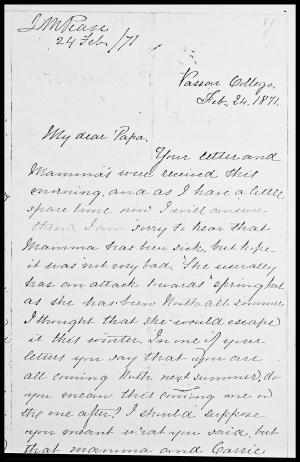 L M Pease
24 Feb /71
Vassar College.
Feb. 24. 1871.
My dear Papa.
Your letter and
Mamma's were received this
morning, and as I have a little
spare time now I will answer
them. I am sorry to hear that
Mamma has been sick, but hope
it was not very bad. She usually
has an attack towards spring, but
as she has been North all summer
I thought that she would escape
it this winter. In one of your
letters you say that you are
all coming North next summer, do
you mean this coming one or
the one after? I should suppose
you meant what you said, but
that mamma and Carrie